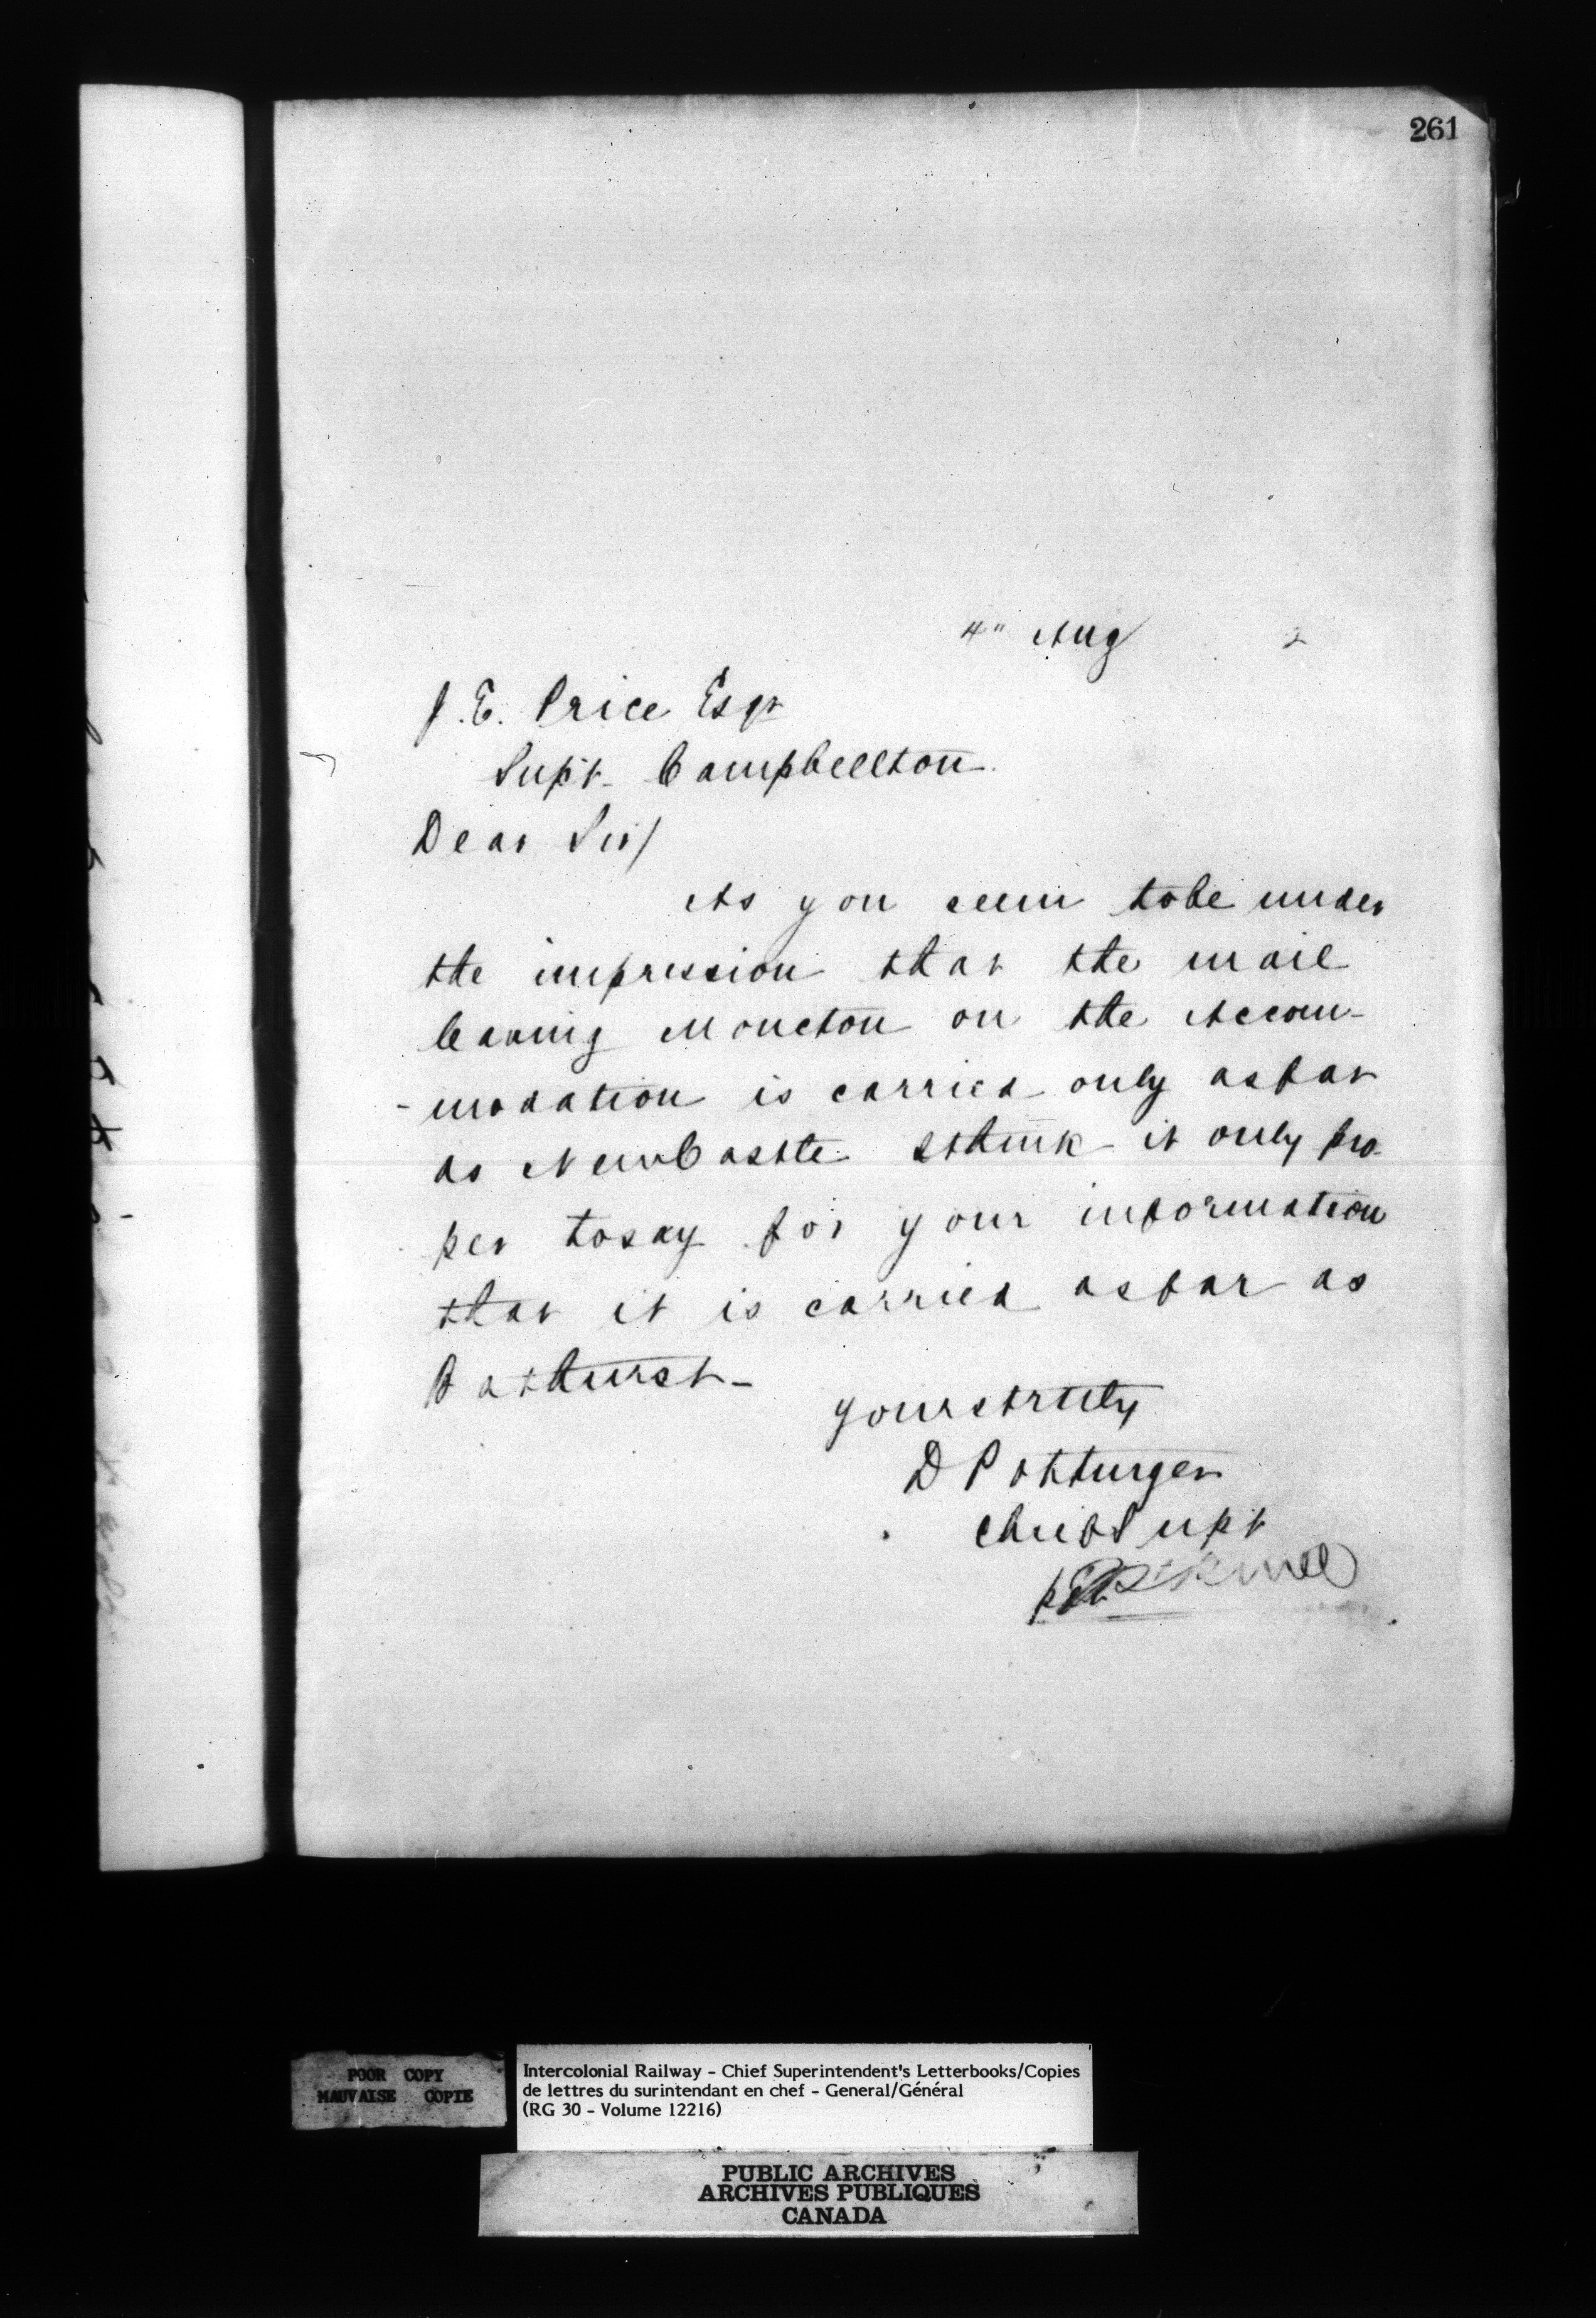 261
4" Aug 2
J. E. Price Esqr
Supt. Campbellton.
Dear Sir/
As you seem to be under
the impression that the mail
leaving Moncton on the Accom-
-modation is carried only as far
as NewCastle I think it only pro-
per to say for your information
that it is carried as far as
Bathurst-
Yours truly
D Pottinger
Chief Supt
per
POOR COPY
MAUVAISE COPIE
Intercolonial Railway - Chief Superintendent's Letterbooks/Copies
de lettres du surintendant en chef - General/Général
(RG 30 - Volume 12216)
PUBLIC ARCHIVES
ARCHIVES PUBLIQUES
CANADA